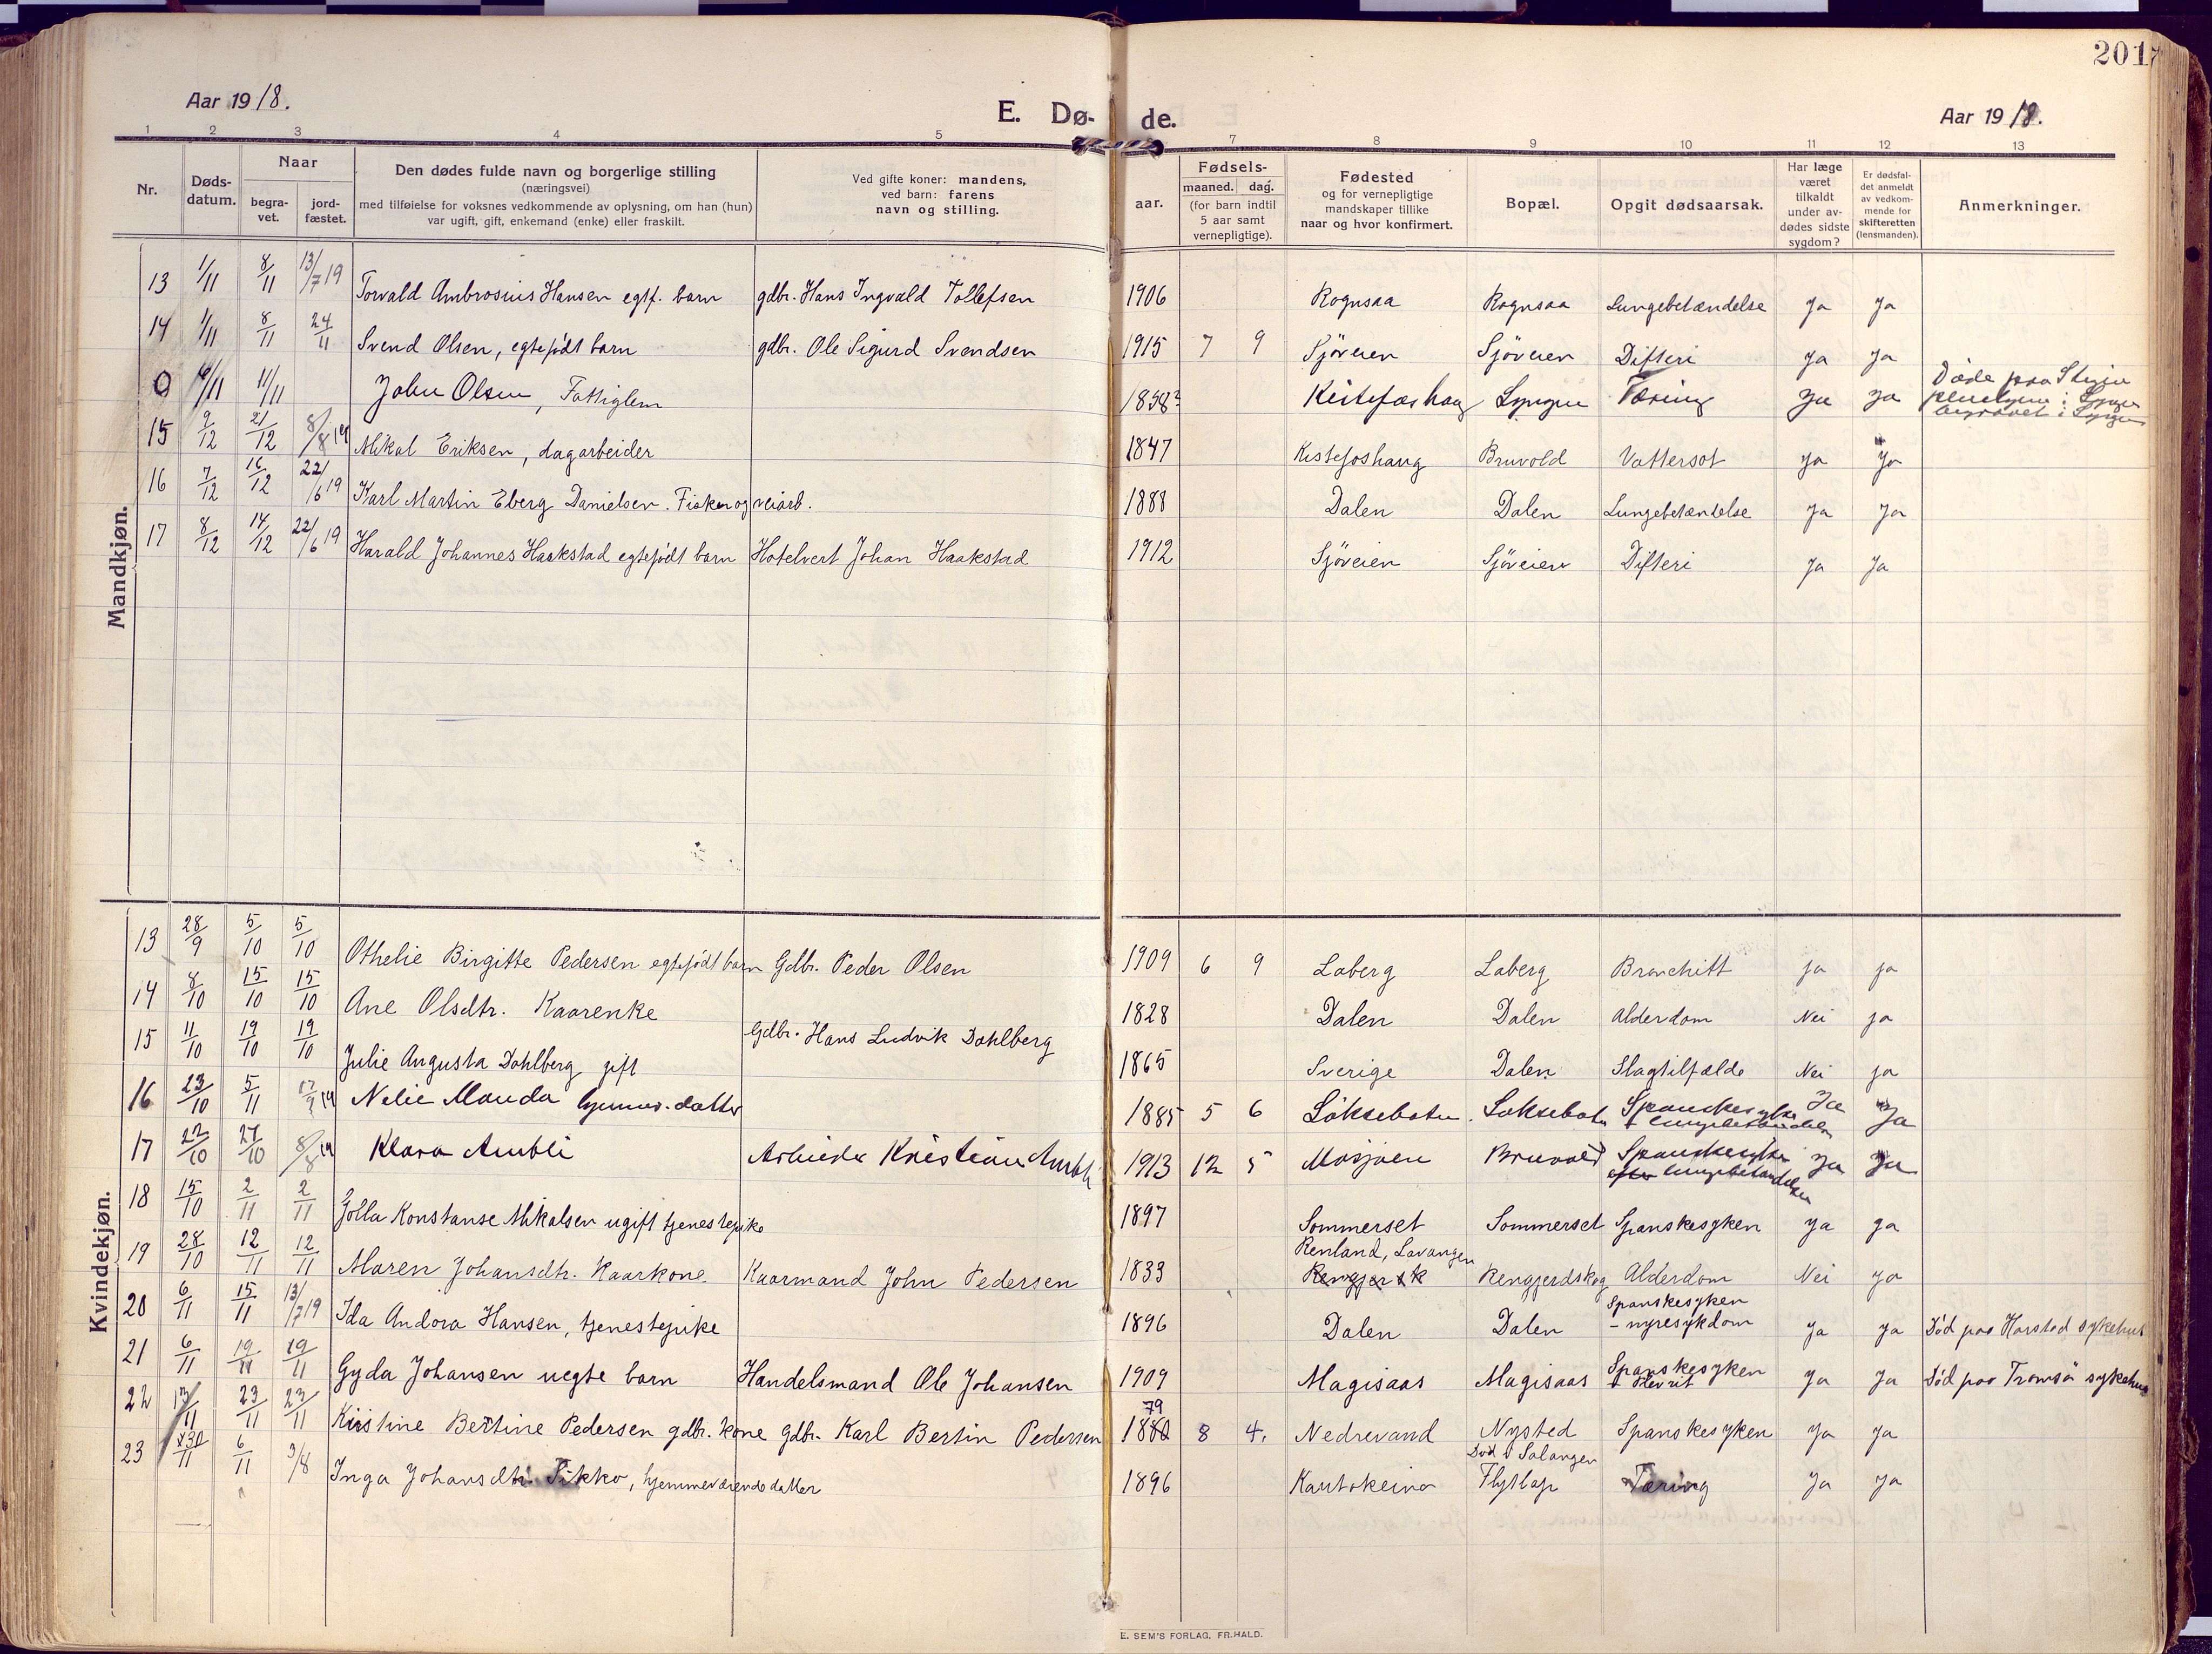 201
Aar 1918.
E. Dø- de.
Aar 1918.
1 2 3 4 5 7 8 9 10 11 12 13
Nr. Døds-datum. Naar begra-vet. jord-fæstet. Den dødes fulde navn og borgerlige stilling (næringsvei) med tilføielse for voksnes vedkommende av oplysning, om han (hun) var ugift, gift, enkemand (enke) eller fraskilt. Ved gifte koner: mandens, ved barn: farens navn og stilling. aar. Fødsels- maaned. dag. (for barn indtil 5 aar samt vernepligtige). Fødested og for vernepligtige mandskaper tillike naar og hvor konfirmert. Bopæl. Opgit dødsaarsak. Har læge været tilkaldt under av-dødes sidste sygdom? Er dødsfal-det anmeldt av vedkom-mende for skifteretten (lensmanden). Anmerkninger.
Mandkjøn.
13 1/11 8/11 13/7 19 Torvald Ambrosius Hansen egtf. barn gdbr. Hans Ingvald Tollefsen 1906 Rognsaa Rognsaa Lungebetændelse Ja Ja
14 1/11 8/11 24/11 Svend Olsen, egtefødt barn gdbr. Ole Sigurd Svendsen 1915 7 9 Sjöveien Sjöveien Difteri Ja Ja
0 9/11 11/11 John Olsen, Fattiglem 1858? Kistefoshaug Lyngen Tæring Ja Ja Døde paa i Lyngen begravet i Lyngen
15 9/12 21/12 8/8 19 Mikal Eriksen, dagarbeider 1847 Kistefoshaug Bruvold Vattersot Ja Ja
16 7/12 16/12 22/6 19 Karl Martin Eberg Danielsen. Fisker og veiarb. 1888 Dalen Dalen Lungebetændelse Ja Ja
17 8/12 14/12 22/6 19 Harald Johannes Haakstad egtefødt barn Hotelvert Johan Haakstad 1912 Sjöveien Sjöveien Difteri Ja Ja
Kvindekjøn.
13 28/9 5/10 5/10 Othelie Birgitte Pedersen egtefødt barn Gdbr. Peder Olsen 1909 6 9 Laberg Laberg Bronchitt ja ja
14 8/10 15/10 15/10 Ane Olsdtr. Kaarenke 1828 Dalen Dalen Alderdom Nei ja
15 11/10 19/10 19/10 Julie Augusta Dahlberg gift Gdbr. Hans Ludvik Dahlberg 1865 Sverige Dalen Slagtilfælde Nei ja
16 23/10 5/11 19 Nelie Manda hjemmv. datter 1885 5 6 Löksebotn Löksebotn Spanskesyke + lungebetændelse Ja Ja
17 22/10 27/10 8/8 19 Klara Ambli Arbeider Kristian Ambli 1913 12 5 Mosjøen Bruvold Spanskesyke efter lungebetændelse Ja Ja
18 15/10 2/11 2/11 Golla Konstanse Mikalsen ugift tjenestepike 1897 Sommerset Sommerset Spanskesyken ya ja
19 28/10 12/11 12/11 Maren Johansdtr. Kaarkone. Kaarmand John Pedersen 1833 Renland, Lavangen Rengjerdskog Alderdom Nei ja
20 6/11 15/11 13/7 19 Ida Andora Hansen, tjenestepike 1896 Dalen Dalen Spanskesyken - nyresykdom ja ja Död paa Harstad sykehus
21 6/11 19/11 19/11 Gyda Johansen uegte barn Handelsmand Ole Johansen 1909 Magisaas Magisaas Spanskesyken + Plevrit ja Ja Död paa Tromsö sykehus
22 13/11 23/11 23/11 Kristine Bertine Pedersen gdbr. kone gdbr. Karl Bertin Pedersen 1880 79 8 4. Nedrevand Nysted Spanskesyken Ja Ja
23 30/11 6/11 9/8 Inga Johansdtr. Sikko, hjemmeværende datter 1896 Kautokeino Död i Salangen Flytlap Tæring Ja Ja
E. SEM'S FORLAG, FR.HALD.